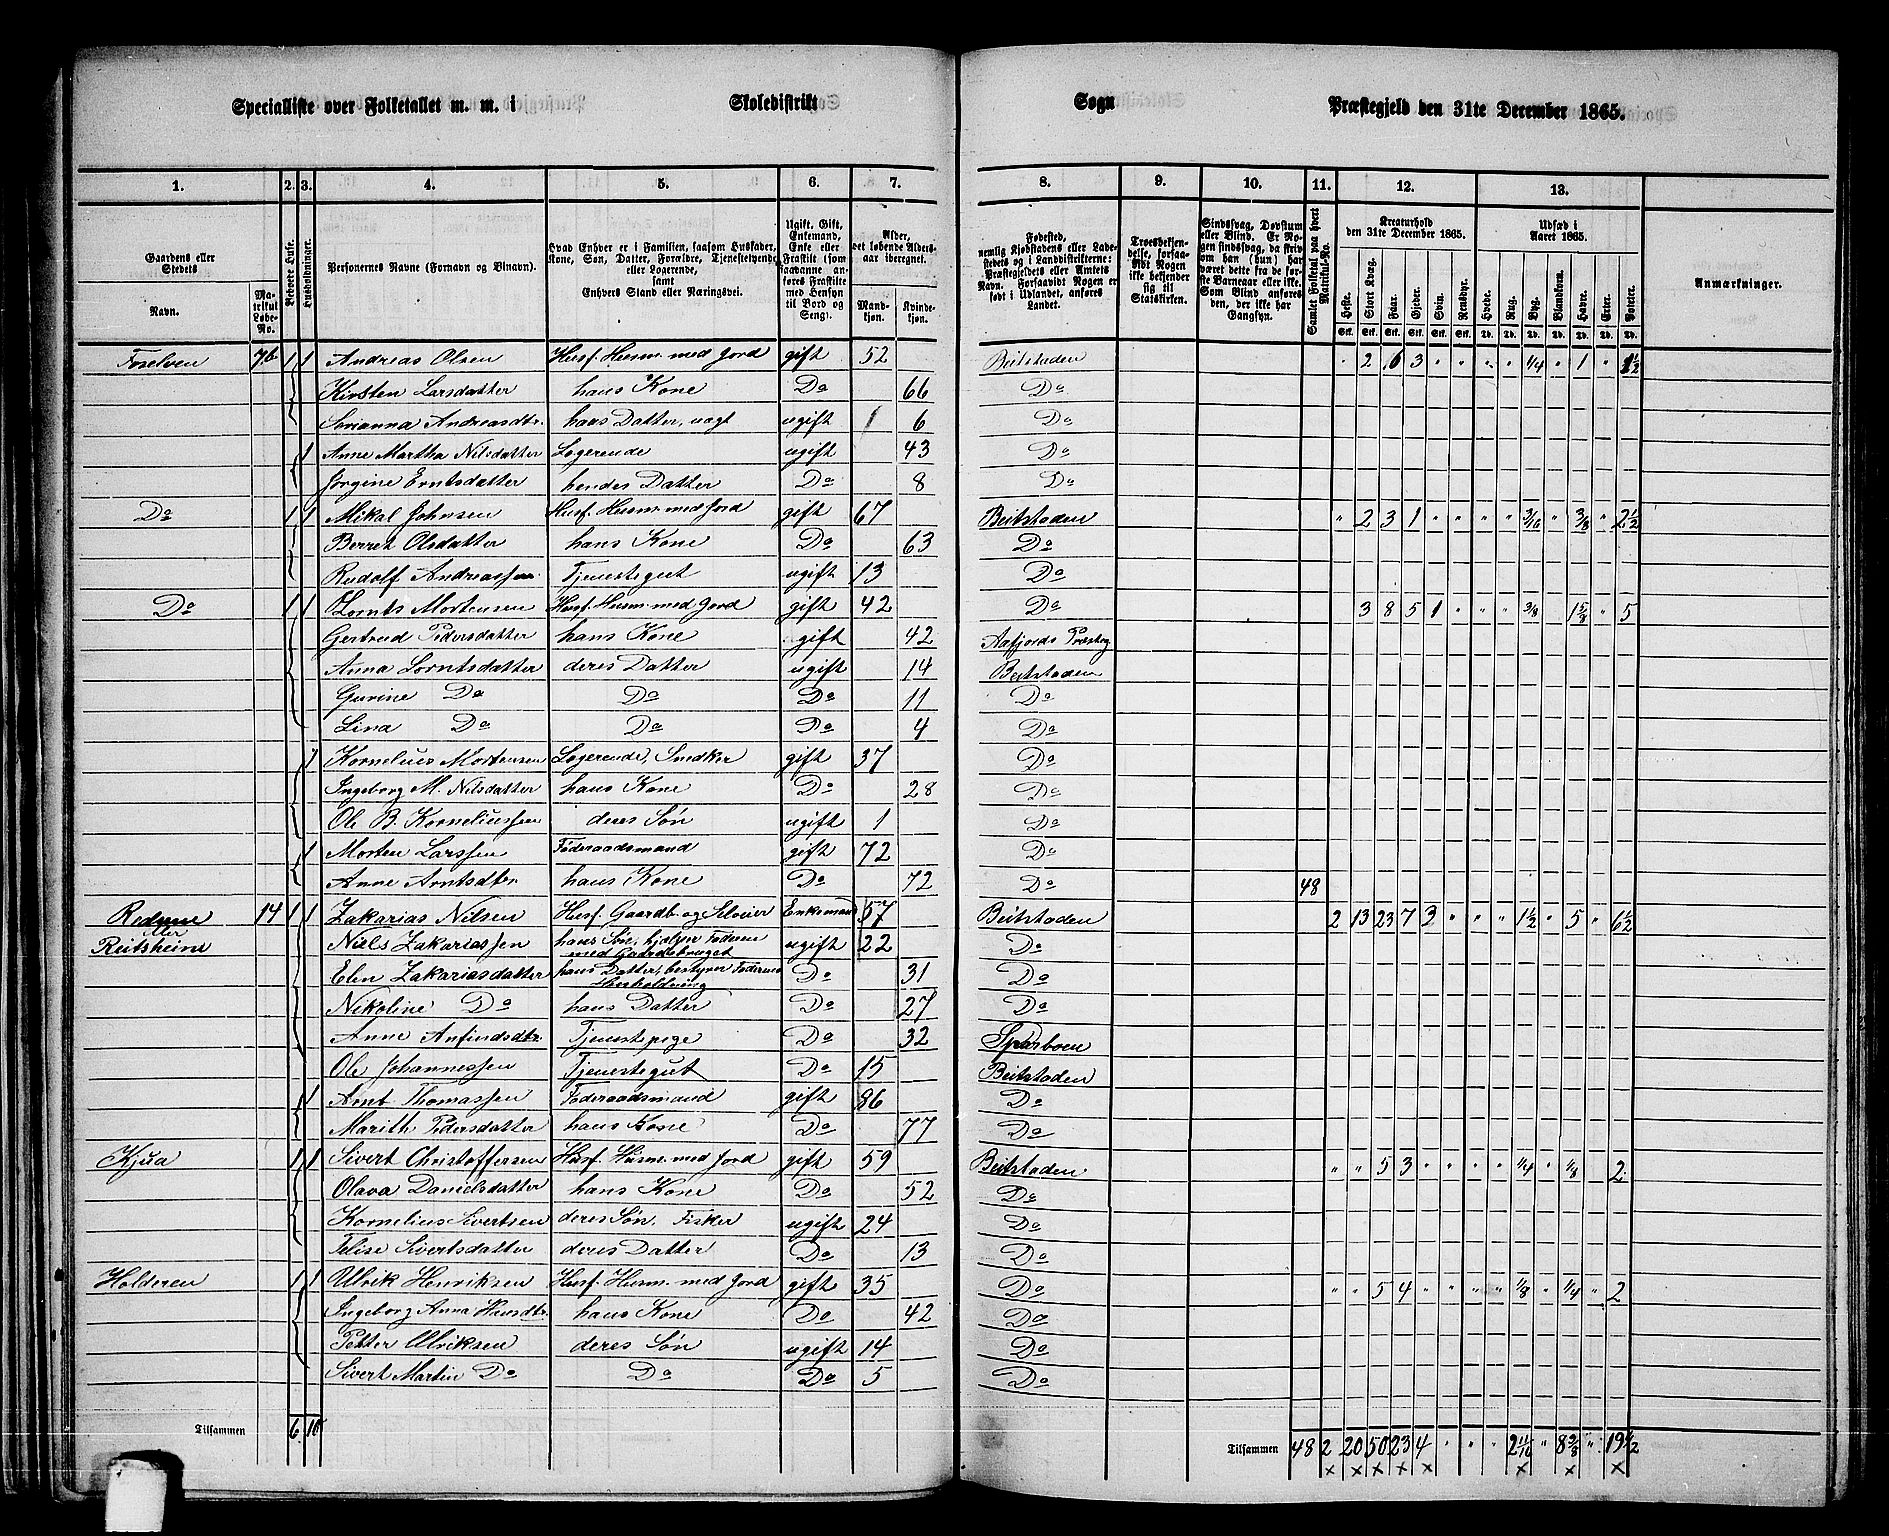 Specialliste over Folketallet m. m. i Skoledistrikt Sogn Præstegjeld den 31te December 1865.
1. 2. 3. 4. 5. 6. 7. 8. 9. 10. 11. 12. 13.
Gaardens eller Stedets
Navn.
Matrikul Løbe-No.
Beboede Huse.
Husholdninger.
Personernes Navne (Fornavn og Tilnavn).
Hvad Enhver er i Familien, saasom Husfader, Kone, Søn, Datter, Forældre, Tjenestetyende, eller Logerende, samt Enhvers Stand eller Næringsvei.
Ugift, Gift, Enkemand, Enke eller Fraskilt (som saadanne anføres Fraskilte med Hensyn til Bord og Seng).
Alder, det løbende Aldersaar iberegnet.
Mandkjøn. Kvindekjøn.
Fødested, nemlig Kjøbstadens eller Ladestedets og i Landdistrikterne: Præstegjeldets eller Amtets Navn. Forsaavidt Nogen er født i Udlandet, anføres Landet.
Troesbekjendelse, forsaavidt Nogen ikke bekjender sig til Statskirken.
Sindssvag, Døvstum eller Blind. Er Nogen sindssvag, da skriv om han (hun) har været dette fra de første Barneaar eller ikke. Som Blind anføres den, der ikke har Gangsyn.
Samlet Folketal paa hvert Matrikul-No.
Kreaturhold den 31te December 1865.
Heste. Stort Kvæg. Faar. Gjeder. Svin. Rensdyr.
Udsæd i Aaret 1865.
Hvede. Rug. Byg. Blandkorn. Havre. Erter. Poteter.
Anmærkninger.
Foselven 7b 1 1 Andreas Olsen Husf. Husm. med Jord gift 52 Beitstaden " 2 6 3 " " " " 1/4 " 1 " 1 1/2
Kirsten Larsdatter hans Kone Do 66 Do
Lovianna Andreasdtr. hans Datter, vagt ugift 6 Do
1 Anne Martha Nilsdatter Logerende ugift 43 Do
Jørgine Erntsdatter hendes Datter Do 8 Do
Do 1 1 Mikal Johnsen Husf. Husm. med Jord gift 67 Beitstaden " 2 3 1 " " " " 3/16 " 3/8 " 2 1/2
Berret Olsdatter hans Kone Do 63 Do
Rudolf Andreassen Tjenestegut ugift 13 Do
Do 1 1 Lornts Mortensen Husf. Husm. med Jord gift 42 Do 3 8 5 1 " " " 3/8 1 5/8 " 5
Gertrud Pedersdatter hans Kone gift 42 Aafjords Præsteg
Anna Lorntsdatter deres Datter ugift 14 Beitstaden
Gurine Do Do Do 11 Do
Lina Do Do Do 4 Do
1 Kornelius Mortensen Logerende, Snedker gift 37 Do
Ingeborg M. Nilsdatter hans Kone Do 28 Do
Ole B. Korneliussen deres Søn ugift 1 Do
1 Morten Larssen Føderaadsmand gift 72 Do
Anne Arntsdtr hans Kone Do 72 Do 48
Redeme eller 14 1 1 Zakarias Nilsen Husf. Gaardb. og Selveier Enkemand 57 Beitstaden 2 13 23 7 3 " " " 1 1/2 " 5 " 6 1/2
Reitsheim Niels Zakariassen hans Søn, hjælper Faderen med Gaardsbruget ugift 22 Do
Elen Zakariasdatter hans Datter, bestyrer Faderens Husholdning Do 31 Do
Nikoline Do hans Datter Do 27 Do
Anne Anfindsdtr. Tjenestepige Do 32 Sparboen
Ole Johannessen Tjenestegut Do 15 Beitstaden
1 Arnt Thomassen Føderaadsmand gift 86 Do
Marith Pedersdatter hans Kone Do 77 Do
Kjua 1 1 Sivert Christoffersen Husf. Husm. med Jord gift 59 Beitstaden " " 5 3 " " " " 1/4 " 1/8 " 2
Olava Danielsdatter hans Kone Do 52 Do
Kornelius Sivertsen deres Søn, Fisker ugift 24 Do
Felise Sivertsdatter deres Datter Do 13 Do
Holderen 1 1 Ulrik Henriksen Husf. Husm. med Jord gift 35 Do " " 5 4 " " " " 1/8 " 1/4 " 2
Ingeborg Anna Hansdtr. hans Kone Do 42 Do
Petter Ulriksen deres Søn ugift 14 Do
Sivert Martin Do Do Do 5 Do
Tilsammen 6 10 Tilsammen 48 2 20 50 23 4 " " " 2 11/16 " 8 3/8 " 19 1/2
x x x x x x x x